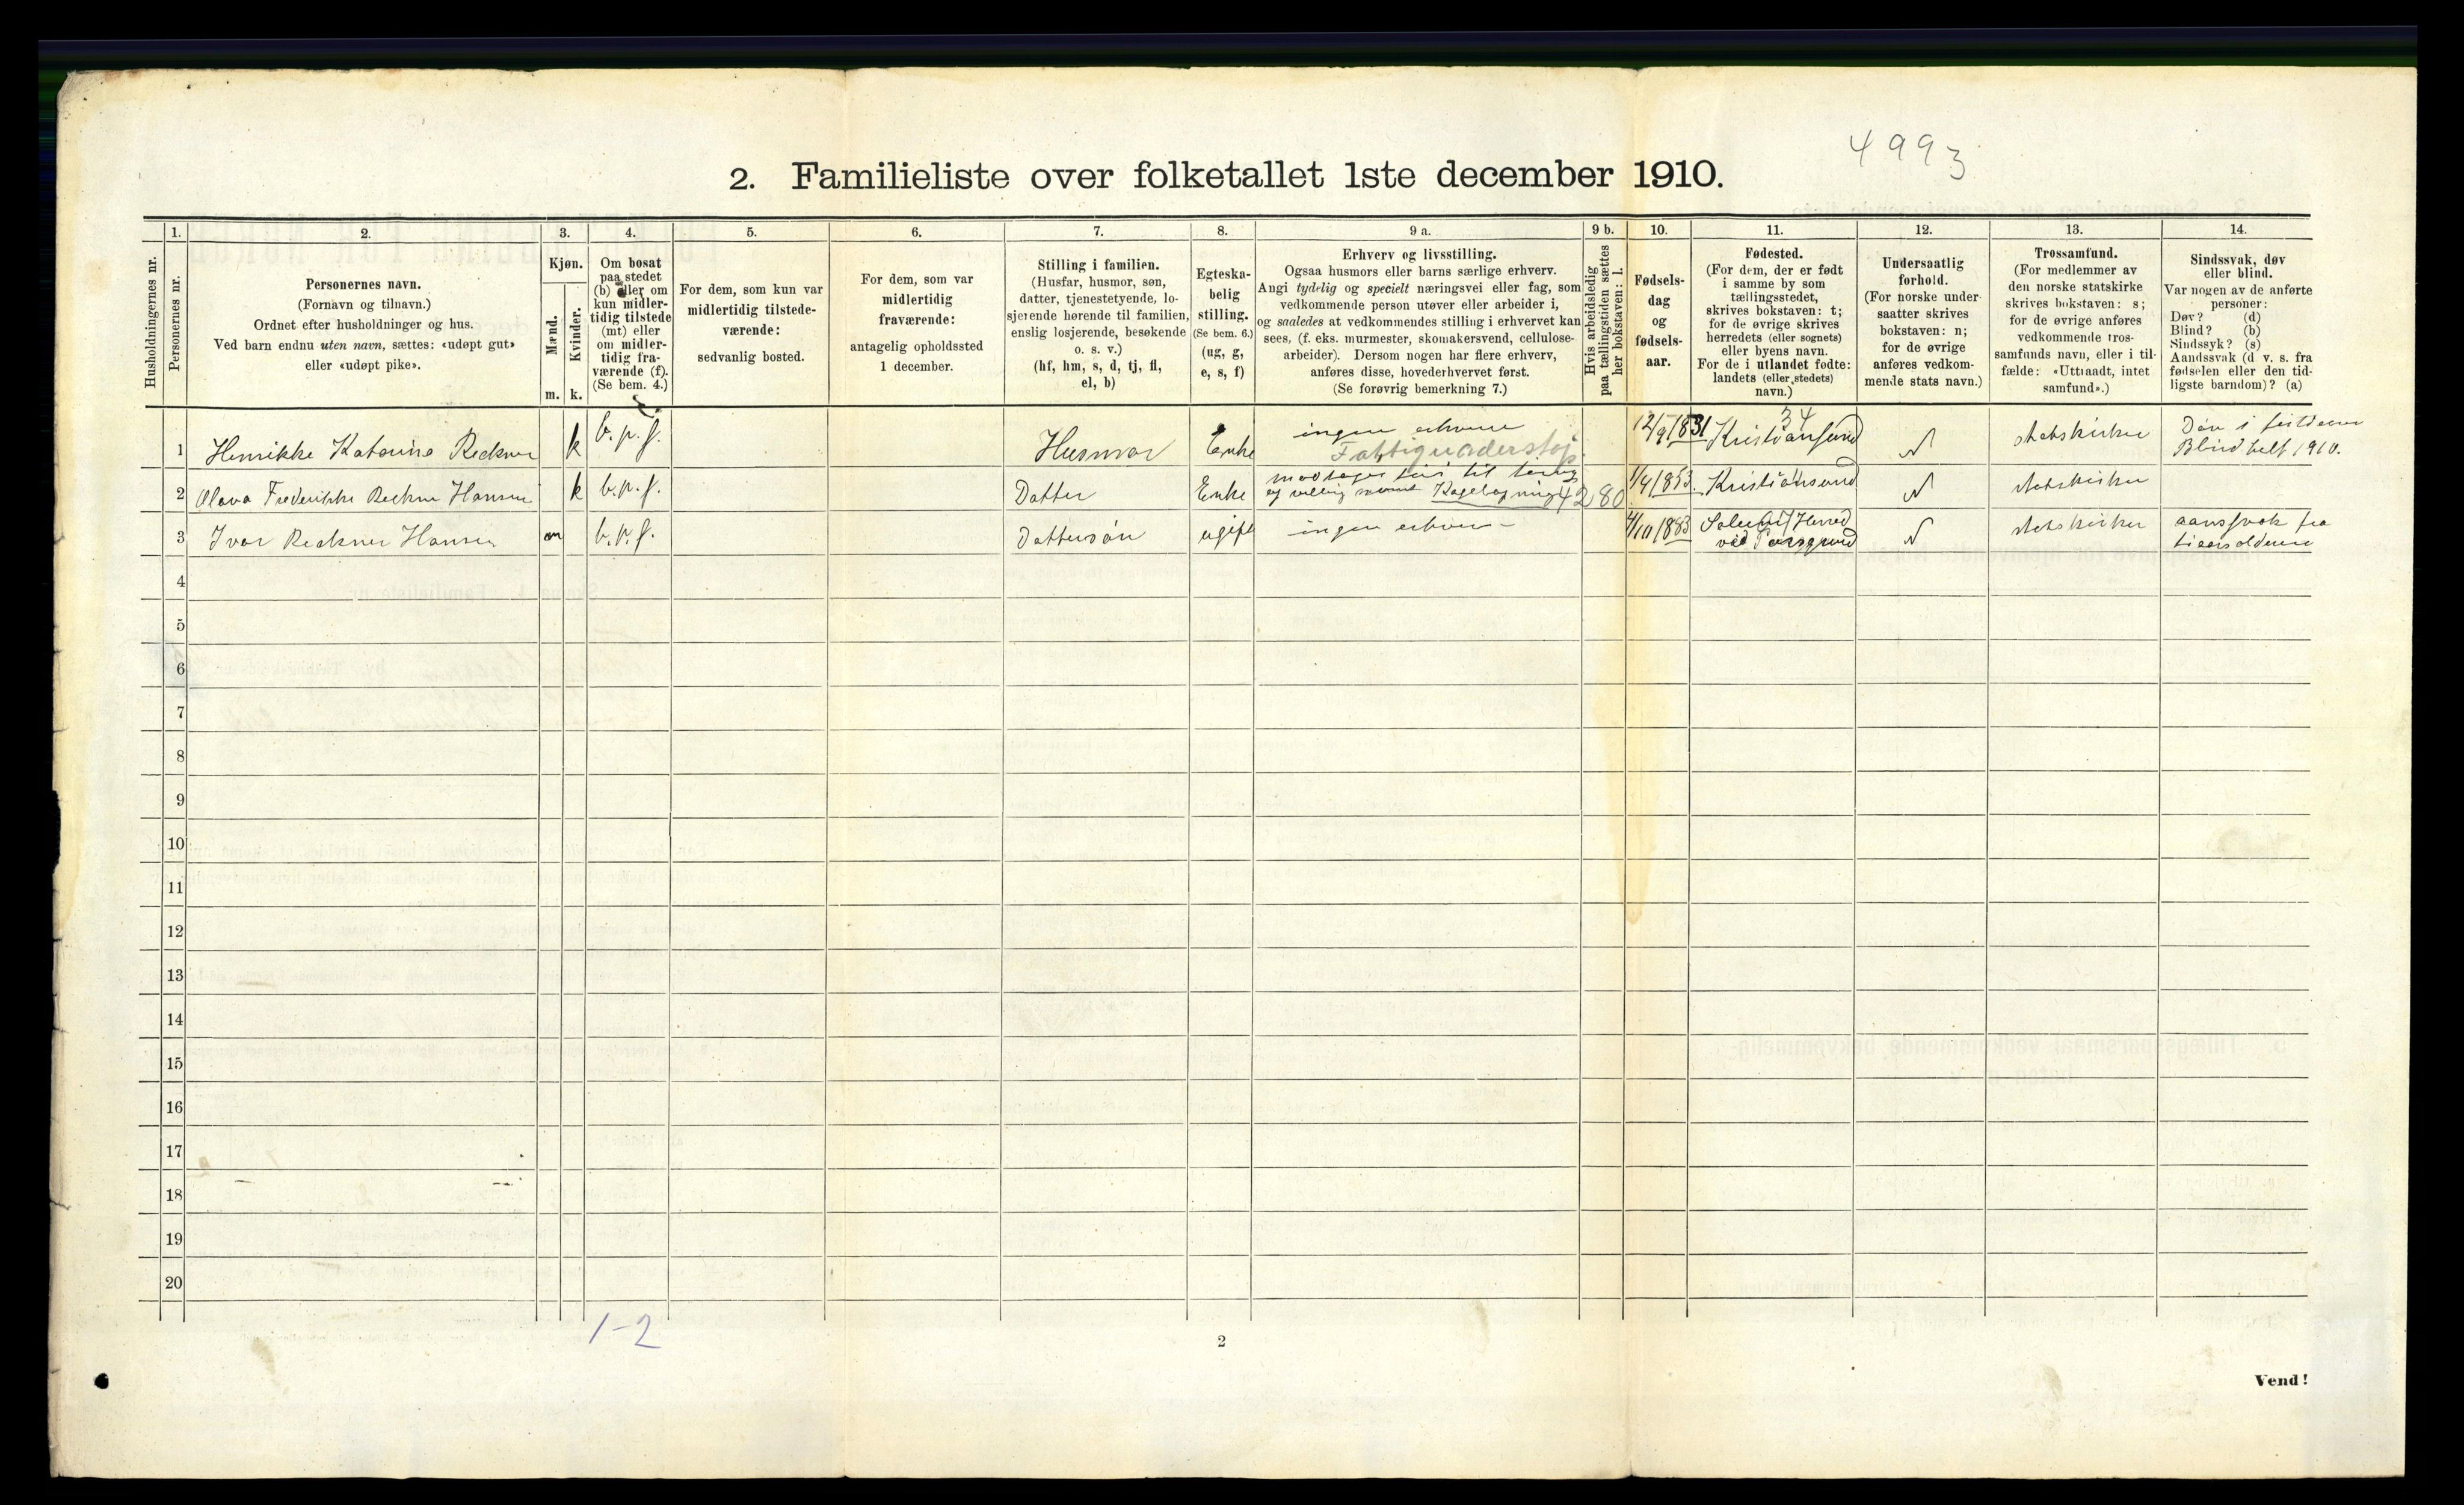 4993
2. Familieliste over folketallet 1ste december 1910.
Husholdningernes nr.
1.
Personernes nr.
2.
Personernes navn.
(Fornavn og tilnavn.)
Ordnet efter husholdninger og hus.
Ved barn endnu uten navn, sættes: «udøpt gut»
eller «udøpt pike».
3.
Kjøn.
Mænd.
Kvinder.
m. k.
4.
Om bosat
paa stedet
(b) eller om
kun midler-
tidig tilstede
(mt) eller
om midler-
tidig fra-
værende (f).
(Se bem. 4.)
5.
For dem, som kun var
midlertidig tilstede-
værende:
sedvanlig bosted.
6.
For dem, som var
midlertidig
fraværende:
antagelig opholdssted
1 december.
7.
Stilling i familien.
(Husfar, husmor, søn,
datter, tjenestetyende, lo-
sjerende hørende til familien,
enslig losjerende, besøkende
o. s. v.)
(hf, hm, s, d, tj, fl,
el, b)
8.
Egteska-
belig
stilling.
(Se bem. 6.)
(ug, g,
e, s, f)
9 a.
Erhverv og livsstilling.
Ogsaa husmors eller barns særlige erhverv.
Angi tydelig og specielt næringsvei eller fag, som
vedkommende person utøver eller arbeider i,
og saaledes at vedkommendes stilling i erhvervet kan
sees, (f. eks. murmester, skomakersvend, cellulose-
arbeider). Dersom nogen har flere erhverv,
anføres disse, hovederhvervet først.
(Se forøvrig bemerkning 7.)
9 b.
Hvis arbeidsledig
paa tællingstiden sættes
her bokstaven: l.
10.
Fødsels-
dag
og
fødsels-
aar.
11.
Fødested.
(For dem, der er født
i samme by som
tællingsstedet,
skrives bokstaven: t;
for de øvrige skrives
herredets (eller sognets)
eller byens navn.
For de i utlandet fødte:
landets (eller stedets)
navn.)
12.
Undersaatlig
forhold.
(For norske under-
saatter skrives
bokstaven: n;
for de øvrige
anføres vedkom-
mende stats navn.)
13.
Trossamfund.
(For medlemmer av
den norske statskirke
skrives bokstaven: s;
for de øvrige anføres
vedkommende tros-
samfunds navn, eller i til-
fælde: «Uttraadt, intet
samfund».)
14.
Sindssvak, døv
eller blind.
Var nogen av de anførte
personer:
Døv? (d)
Blind? (b)
Sindssyk? (s)
Aandssvak (d v. s. fra
fødselen eller den tid-
ligste barndom)? (a)
1 Henrikke Katarina Reckner k b.p.s. Husmor Enke ingen erhverv Fattigunderstøt 12/9 1831 34 Kristiansund N statskirken Blind helt 1910.
2 Olava Frederikke Reckner Hansen k b.p.s. Datter Enke modtager til og samt Kagebagning 4280 1/4 1853. Kristiansund N statskirken
3 Ivar Reckner Hansen m b.p.s. Dattersøn ugift ingen erhverv 4/10 1883 Herred ved Porsgrund N statskirken fra
4
5
6
7
8
9
10
11
12
13
14
15
16
17
18
19
20
1-2
2
Vend!